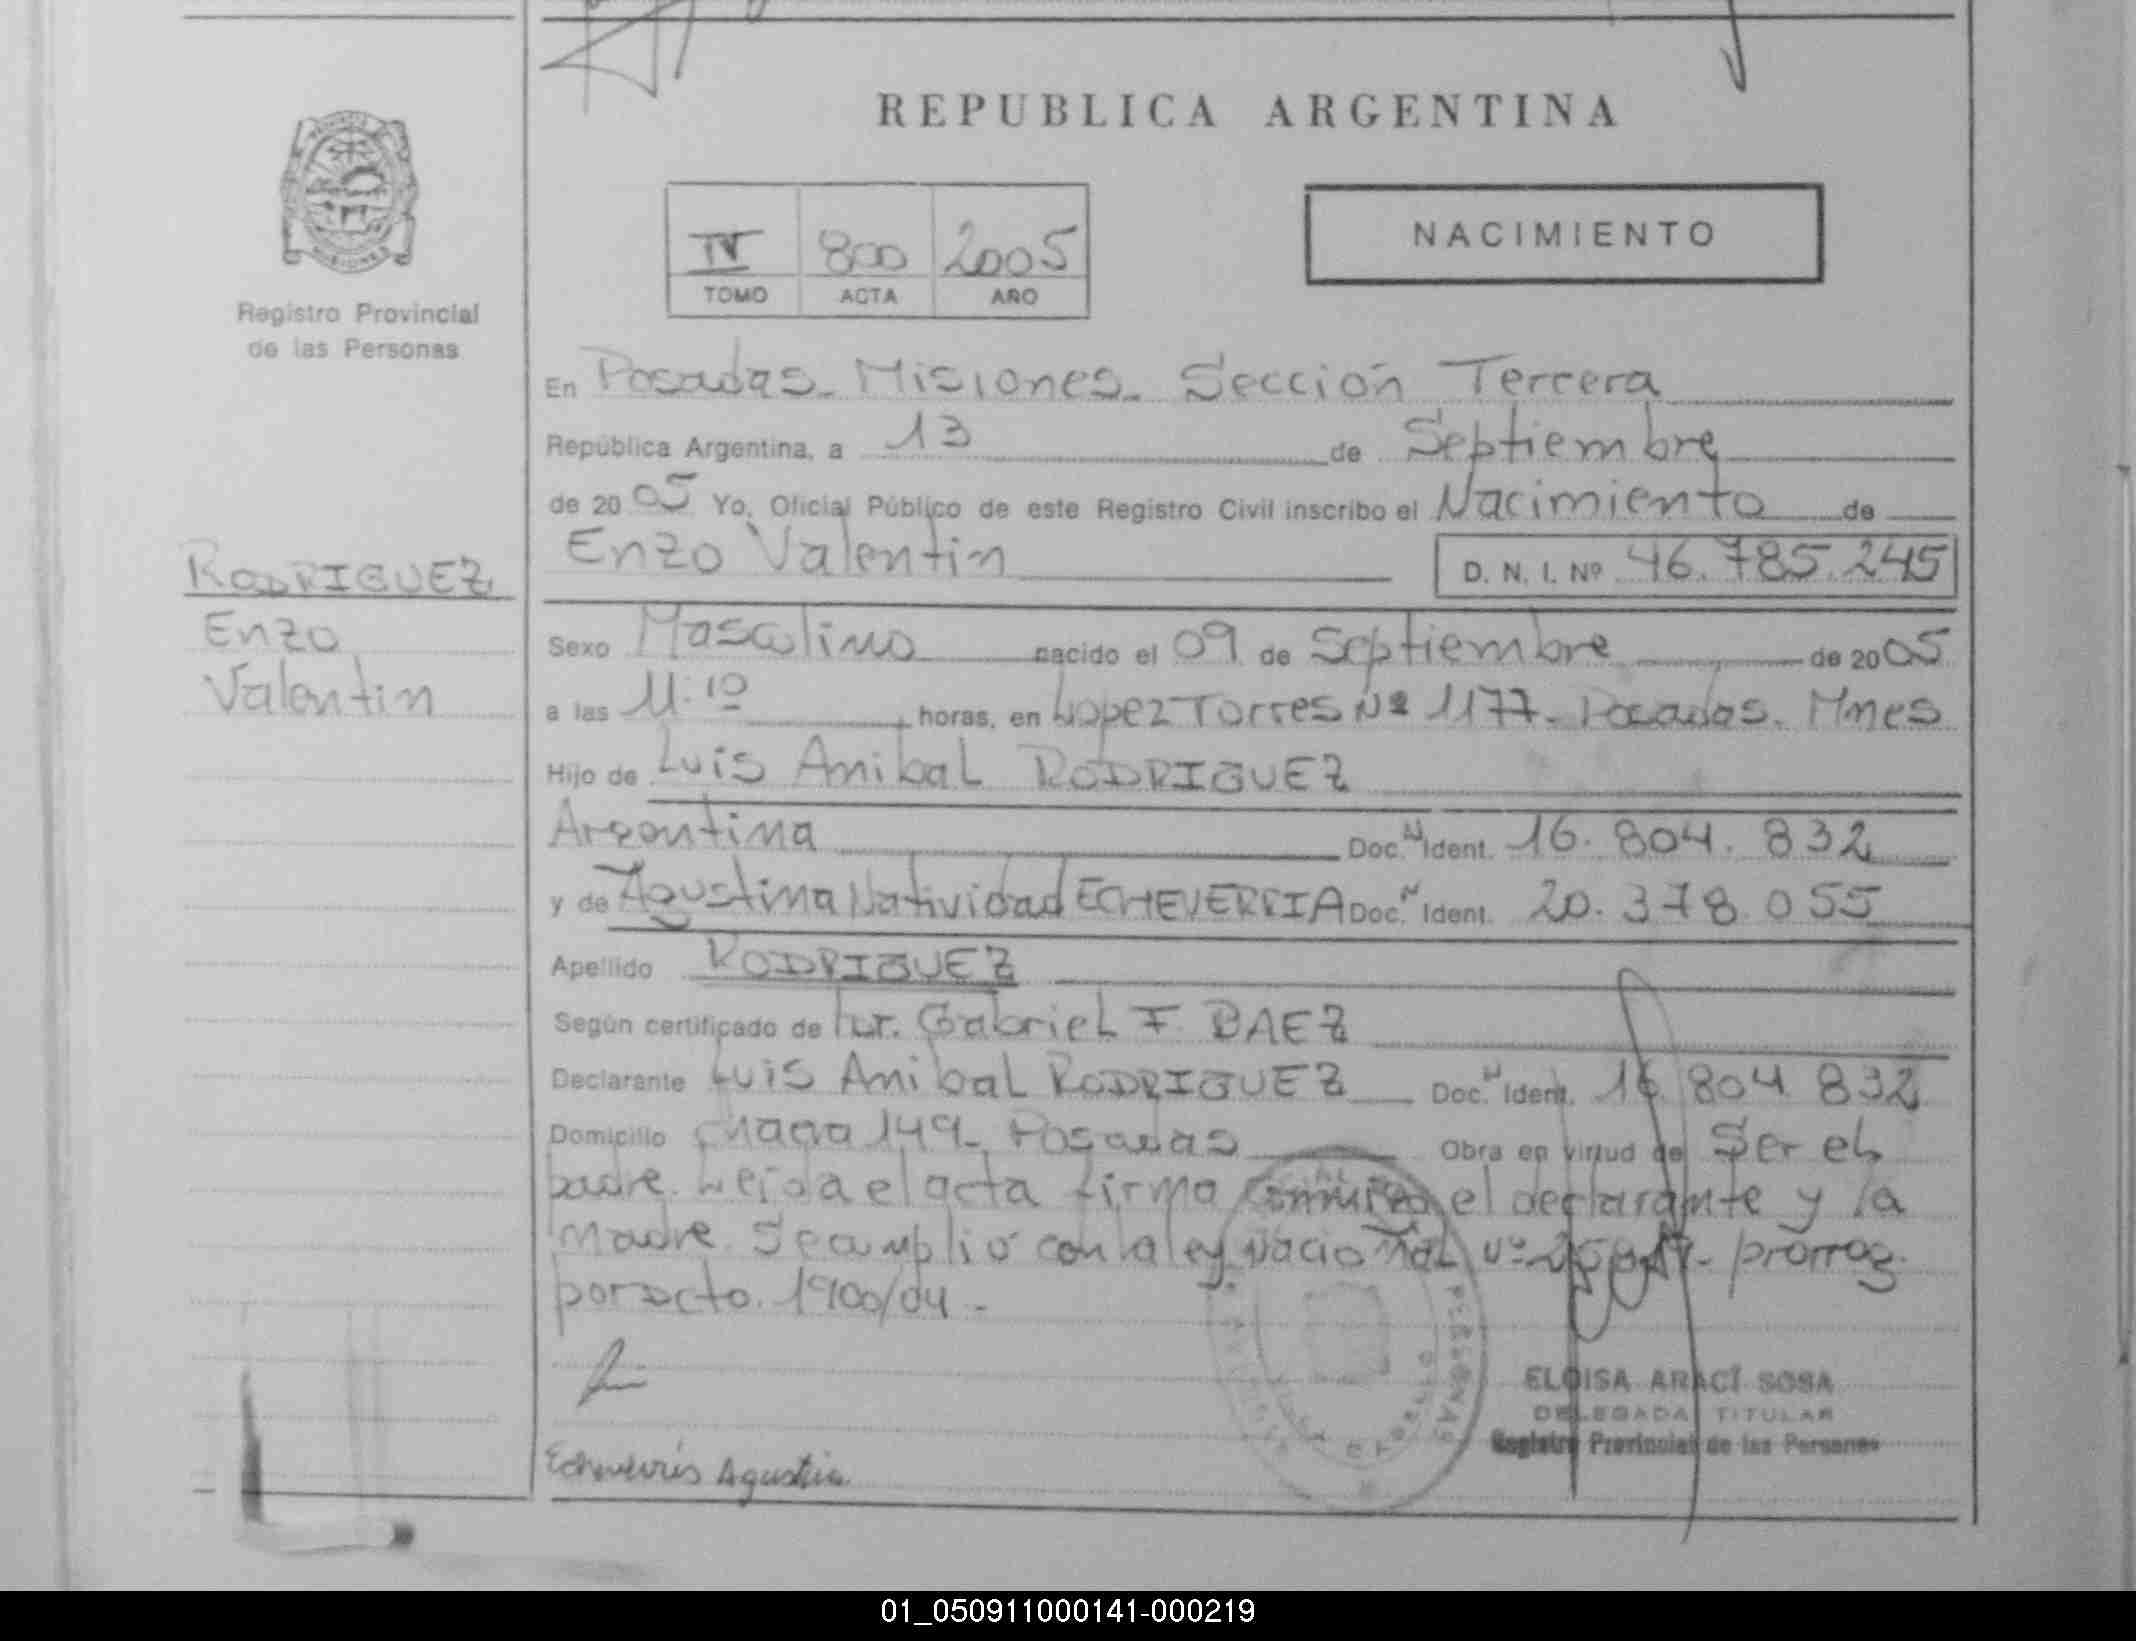 REPUBLICA ARGENTINA
NACIMIENTO
IV 800 2005
TOMO ACTA AÑO
Registro Provincial
de las Personas
En Posadas. Misiones. Sección Tercera
República Argentina, a 13 de Septiembre
de 2005 Yo, Oficial Público de este Registro Civil inscribo el Nacimiento de
Enzo Valentin D. N. I. Nº 46.785.245
RODRIGUEZ
Enzo
Valentin
Sexo Masculino nacido el 09 de Septiembre de 2005
a las 11:10 horas, en Lopez Torres Nº 1177. Posadas. Mnes
Hijo de Luis Anibal RODRIGUEZ
Argentina Doc. N Ident. 16.804.832
y de Agustina Natividad ECHEVERRIA Doc. N Ident. 20.378.055
Apellido RODRIGUEZ
Según certificado de Gabriel F. BAEZ
Declarante Luis Anibal RODRIGUEZ Doc. N Ident. 16 804 832
Domicilio 149. Posadas Obra en virtud de Ser el
padre. Leida el acta firma conmigo el declarante y la
madre. Se cumplió con la ley nacional Nº prorrog.
por Dcto. 1900/04.-
ELOISA ARACÍ SOSA
DELEGADA TITULAR
Registro Provincial de las Personas
Echeverría Agustina
PERSONAS
01_050911000141-000219